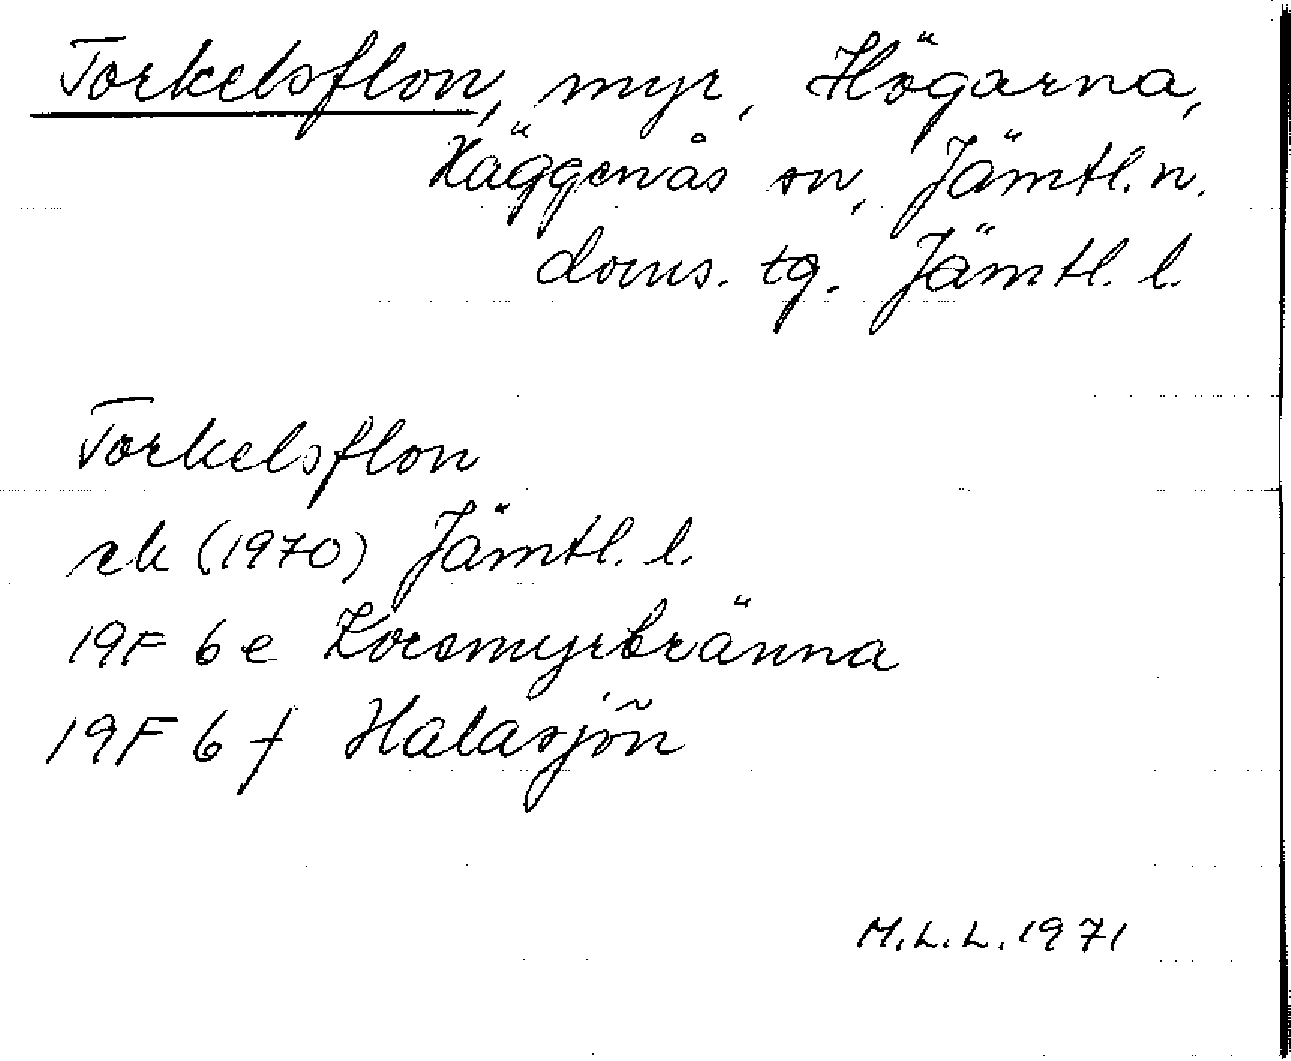 Torkelsflon, myr, Högarna,
Käggenäs sn, Jämtl. n.
doms. tg. Jämtl. l.
Torkelsflon
rk (1970) Jämtl. l.
19F 6 e Korsmyrbränna
19F 6 f Halasjön
M.L.L. 1971